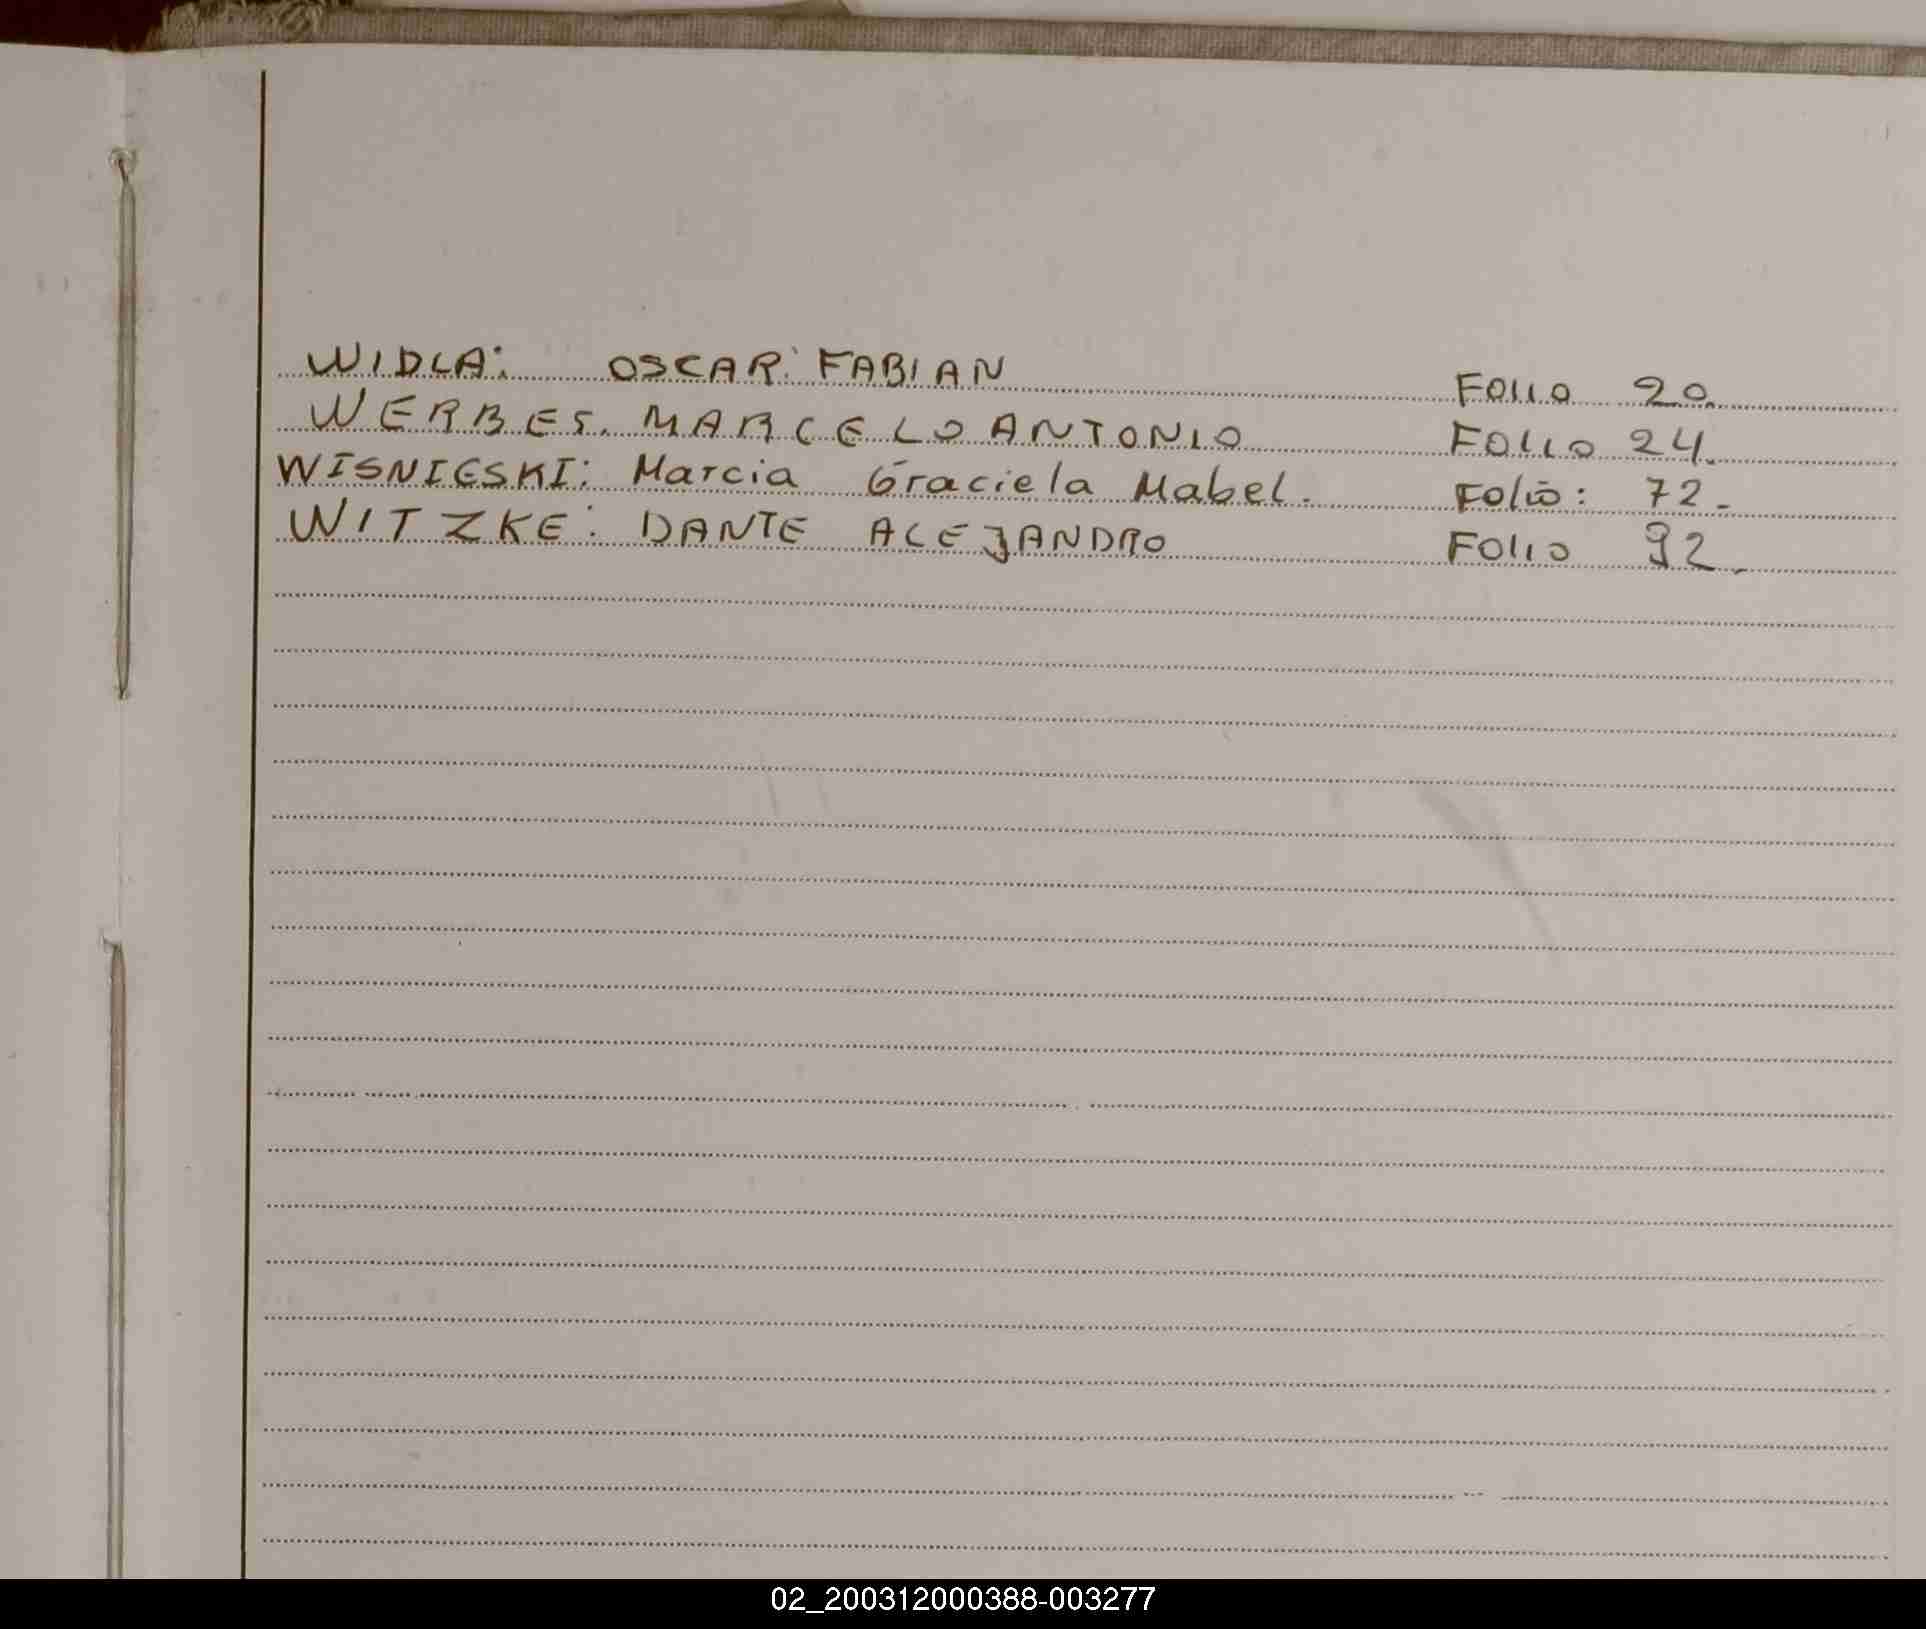 WIDLA: OSCAR FABIAN FOLIO 20.
WERBES. MARCELO ANTONIO FOLIO 24.
WISNIESKI: Marcia Graciela Mabel. Folio: 72.
WITZKE: DANTE ALEJANDRO FOLIO 92.
02_200312000388-003277